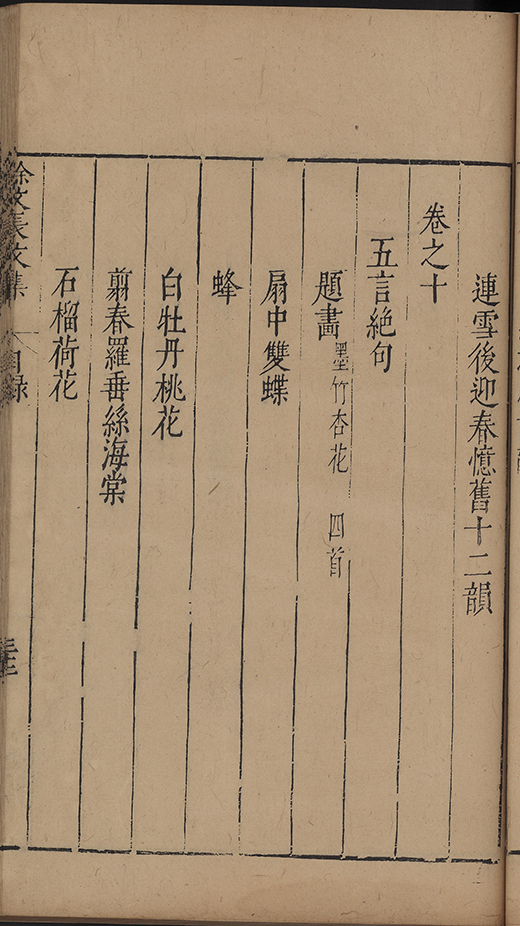 連雪後迎春憶舊十二韻
卷之十
五言絕句
題畫墨竹杏花 四首
扇中雙蝶
蜂
白牡丹桃花
翦春羅垂絲海棠
石榴荷花
徐文長文集 目録